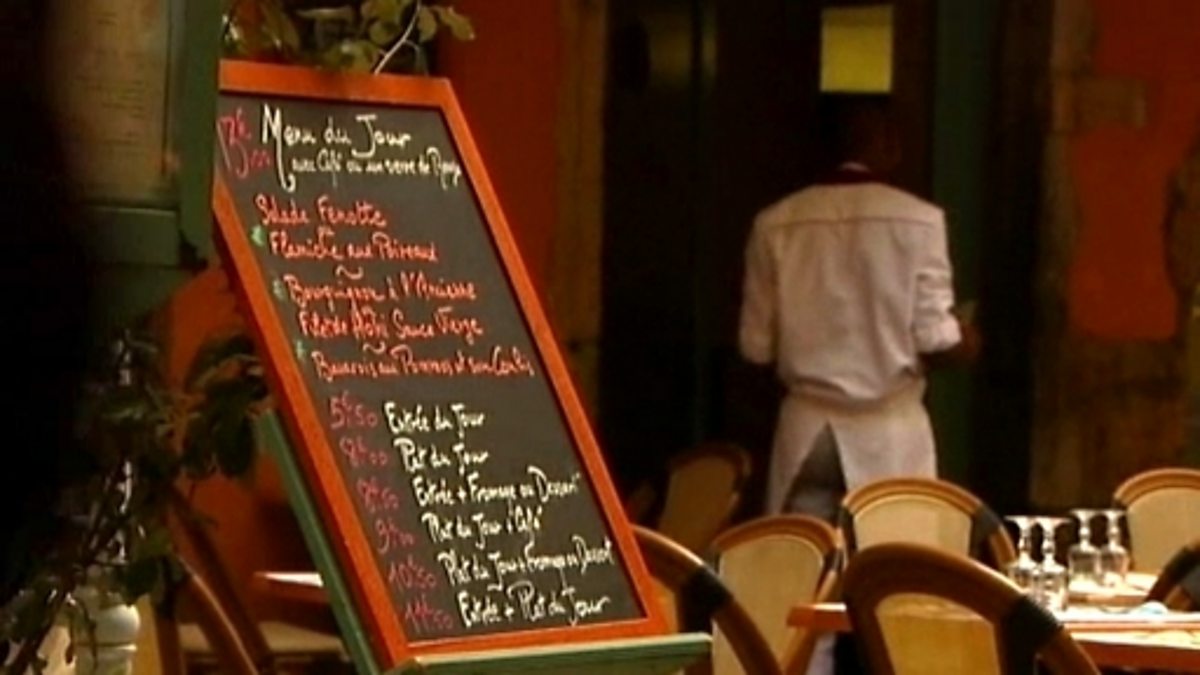 13€ Menu du Jour
avec Café ou un verre de Rouge
Salade Fenotte
Flamiche aux Poireaux
~
Bourguignon à l'Ancienne
Filet de Sauce Vierge
~
Bavarois aux Pommes et son Coulis
5€50 Entrée du Jour
8€00 Plat du Jour
8€50 Entrée + Fromage ou Dessert
Plat du Jour Café
10€50 Plat du Jour + Fromage ou Dessert
11€50 Entrée + Plat du Jour